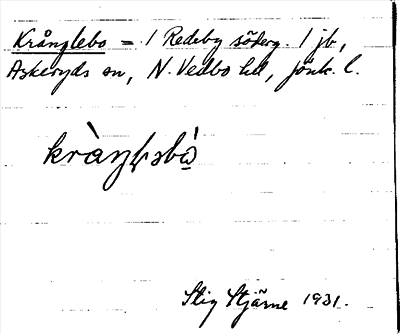 Krånglebo = 1 Redeby söderg. 1 jb,
Askeryds sn, N. Vedbo hd, jönk. l.
Stig Stjärne 1931.